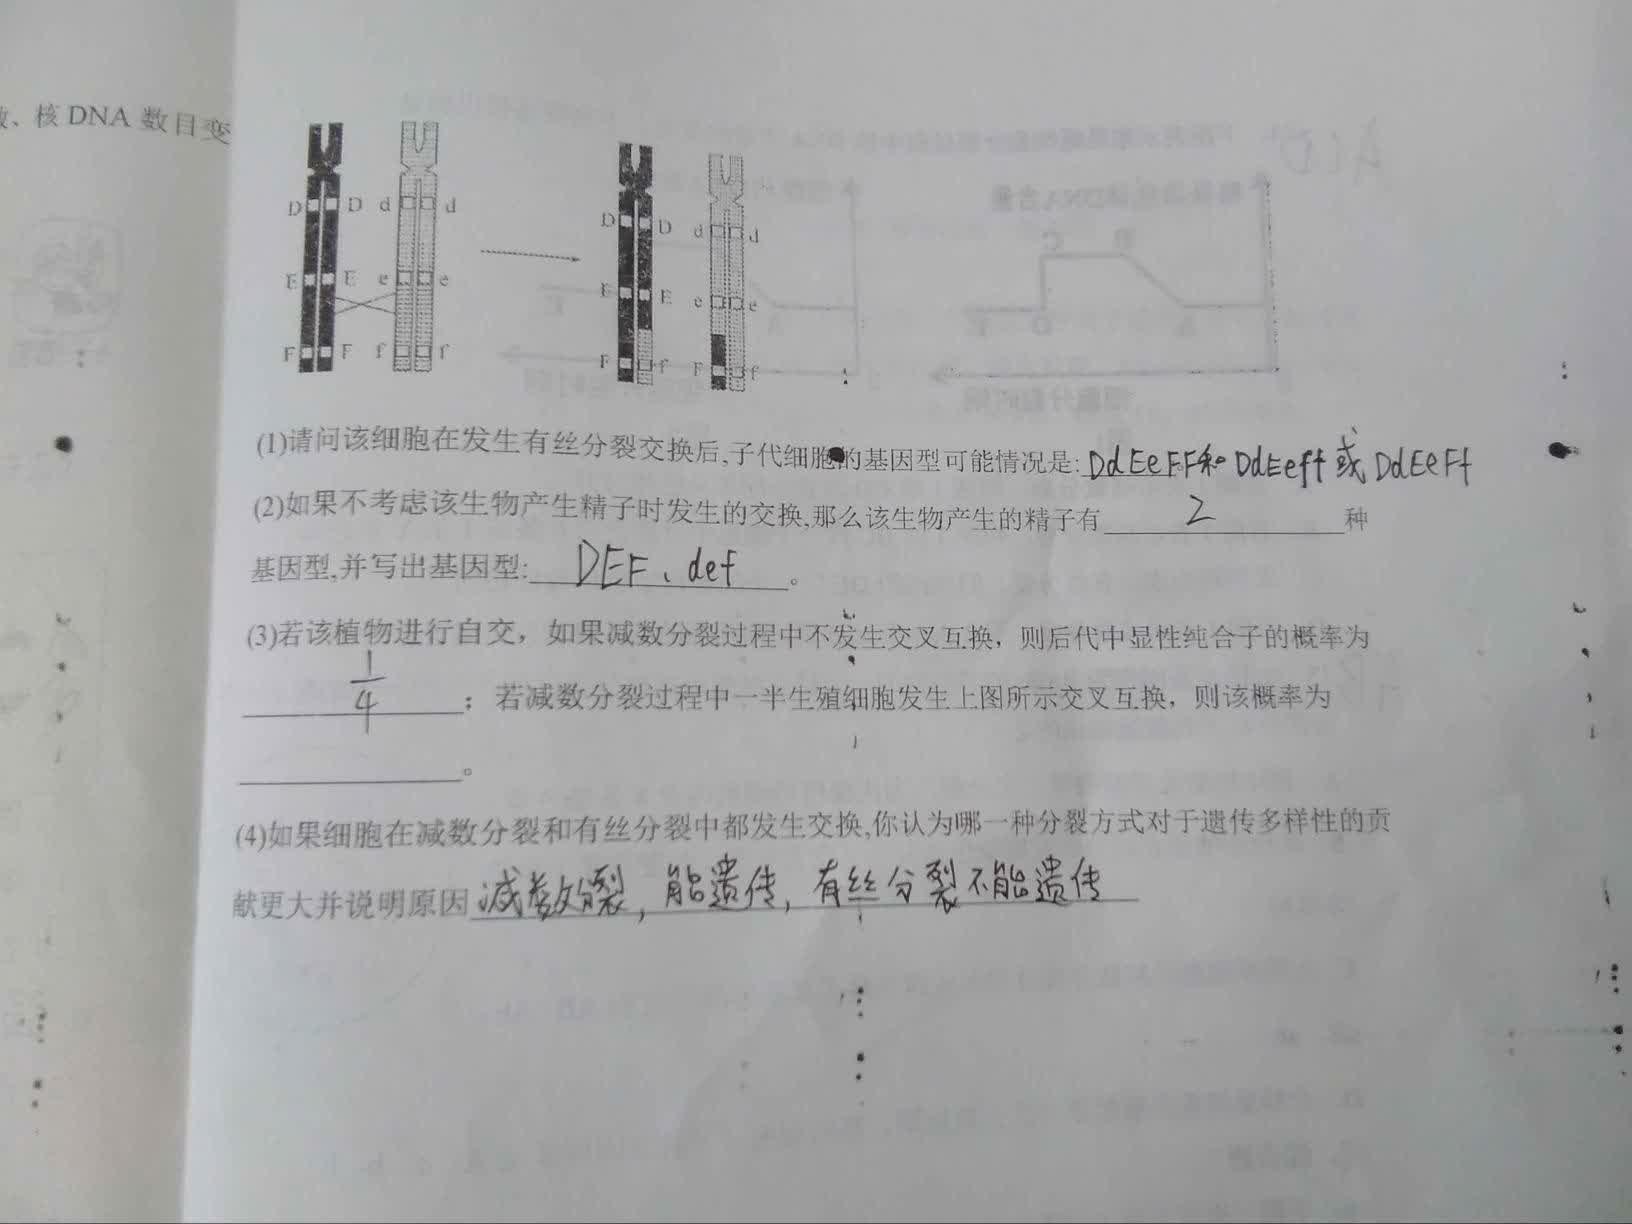 数、核DNA数目变
D D d d
E E e e
F F f f
D D d d
E E e e
F f F f
(1)请问该细胞在发生有丝分裂交换后,子代细胞的基因型可能情况是: DdEeFF和DdEeff或DdEeFf
(2)如果不考虑该生物产生精子时发生的交换,那么该生物产生的精子有 2 种
基因型,并写出基因型: DEF、def 。
(3)若该植物进行自交，如果减数分裂过程中不发生交叉互换，则后代中显性纯合子的概率为
1/4 ；若减数分裂过程中一半生殖细胞发生上图所示交叉互换，则该概率为
。
(4)如果细胞在减数分裂和有丝分裂中都发生交换,你认为哪一种分裂方式对于遗传多样性的贡
献更大并说明原因 减数分裂，能遗传，有丝分裂不能遗传